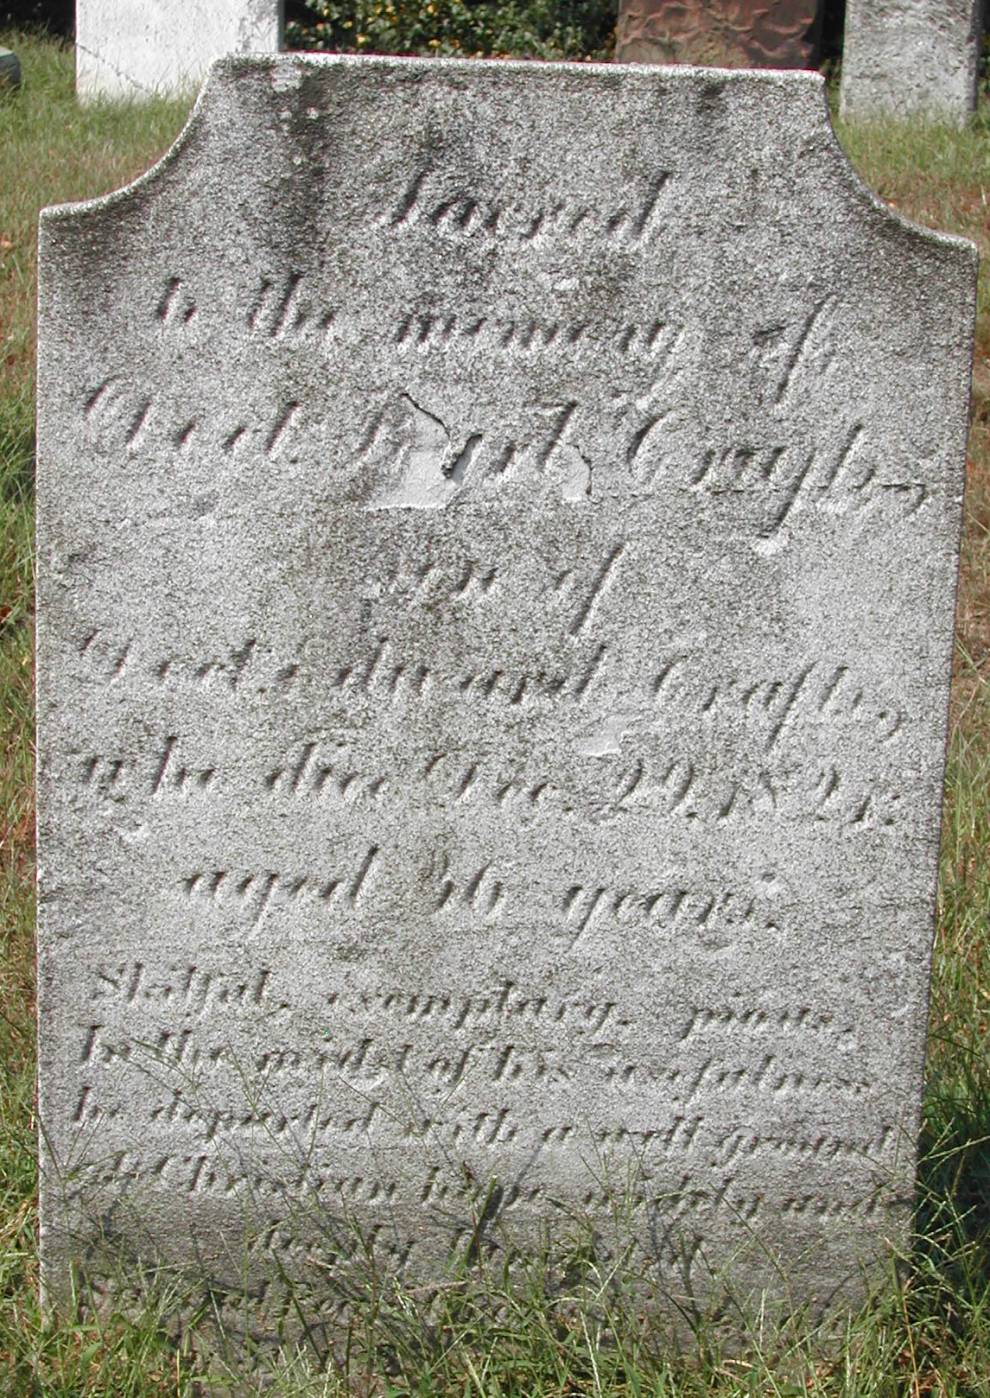 Sacred
to the memory of
Doct. Crafts,
son of
Doct. Edward Crafts,
who died Dec. 29, 1821.
aged 36 years.
Skilful, exemplary, pious,
In the midst of his usefulness
he departed with a well ground
ed Christian hope, widely and
deeply lamented